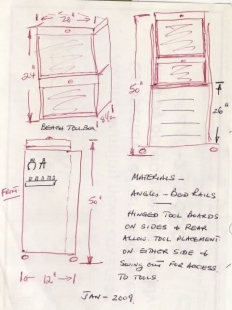 20"
24"
8½
BENCH TOOLBOX
50"
26"
FRONT
50"
12"
MATERIALS -
ANGLES - BED RAILS
HINGED TOOL BOARDS
ON SIDES & REAR
ALLOW TOOL PLACEMENT
ON EITHER SIDE &
SWING OUT FOR ACCESS
TO TOOLS.
JAN - 2009